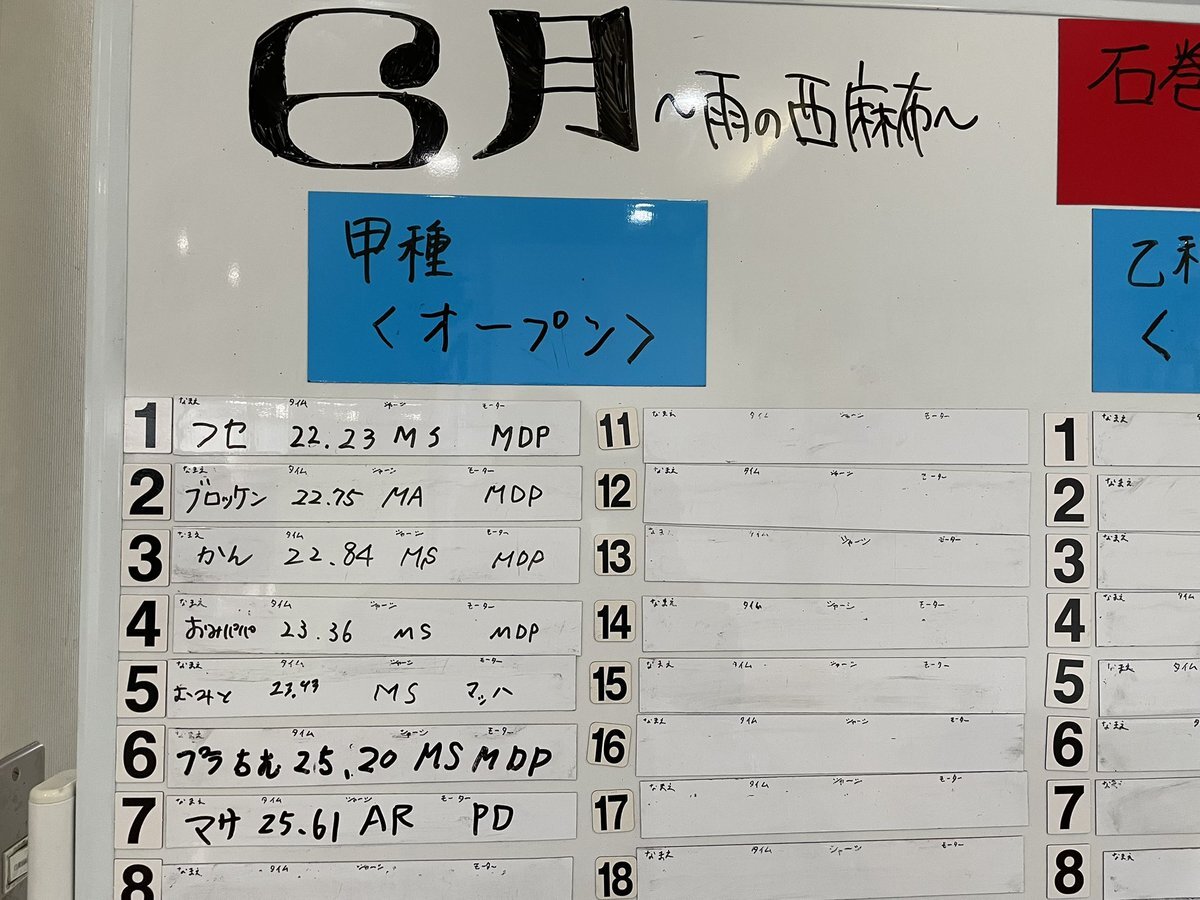 6月 ～雨の西麻布～
石巻
甲種
<オープン>
乙種
<
1 なまえ タイム シャーシ モーター
フセ 22.23 MS MDP
2 なまえ タイム シャーシ モーター
ブロッケン 22.75 MA MDP
3 なまえ タイム シャーシ モーター
かん 22.84 MS MDP
4 なまえ タイム シャーシ モーター
おみパパ 23.36 MS MDP
5 なまえ タイム シャーシ モーター
23.43 MS マッハ
6 なまえ タイム シャーシ モーター
プラちん 25.20 MS MDP
7 なまえ タイム シャーシ モーター
マサ 25.61 AR PD
8 なまえ タイム シャーシ モーター
11 なまえ タイム シャーシ モーター
12 なまえ タイム シャーシ モーター
13 なまえ タイム シャーシ モーター
14 なまえ タイム シャーシ モーター
15 なまえ タイム シャーシ モーター
16 なまえ タイム シャーシ モーター
17 なまえ タイム シャーシ モーター
18 なまえ タイム シャーシ モーター
1 なまえ
2 なまえ
3 なまえ
4 なまえ タイム
5 なまえ タイム
6 なまえ タイム
7 なまえ
8 なまえ